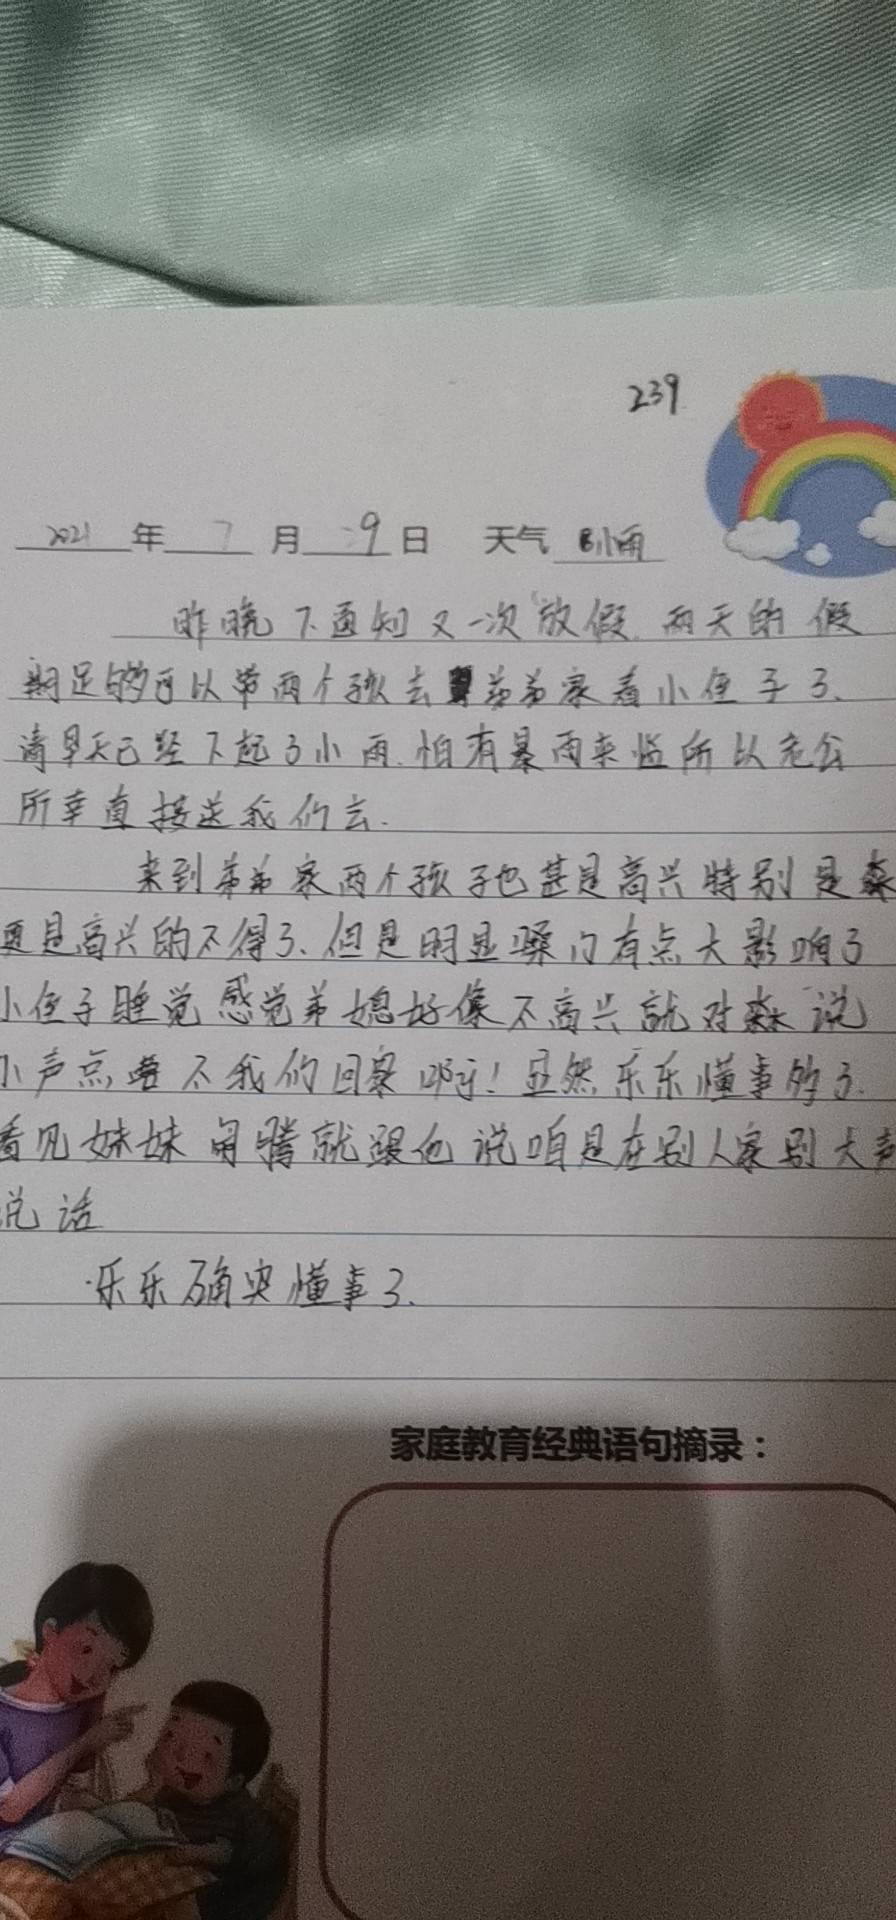 239
2021 年 7 月 29 日 天气 小雨
昨晚下通知又一次放假.两天的假
期足够可以带两个孩去弟弟家看小侄子了、
清早天已经下起了小雨.怕有暴雨来临所以老公
所幸直接送我们去.
来到弟弟家两个孩子也甚是高兴特别是淼
更是高兴的不得了、但是明显嗓门有点大影响了
小侄子睡觉感觉弟媳好像不高兴就对淼淼说
小声点 不我们回家啊！显然乐乐懂事的了.
看见妹妹闹腾就跟他说咱是在别人家别大声
说话
乐乐确实懂事了.
家庭教育经典语句摘录：